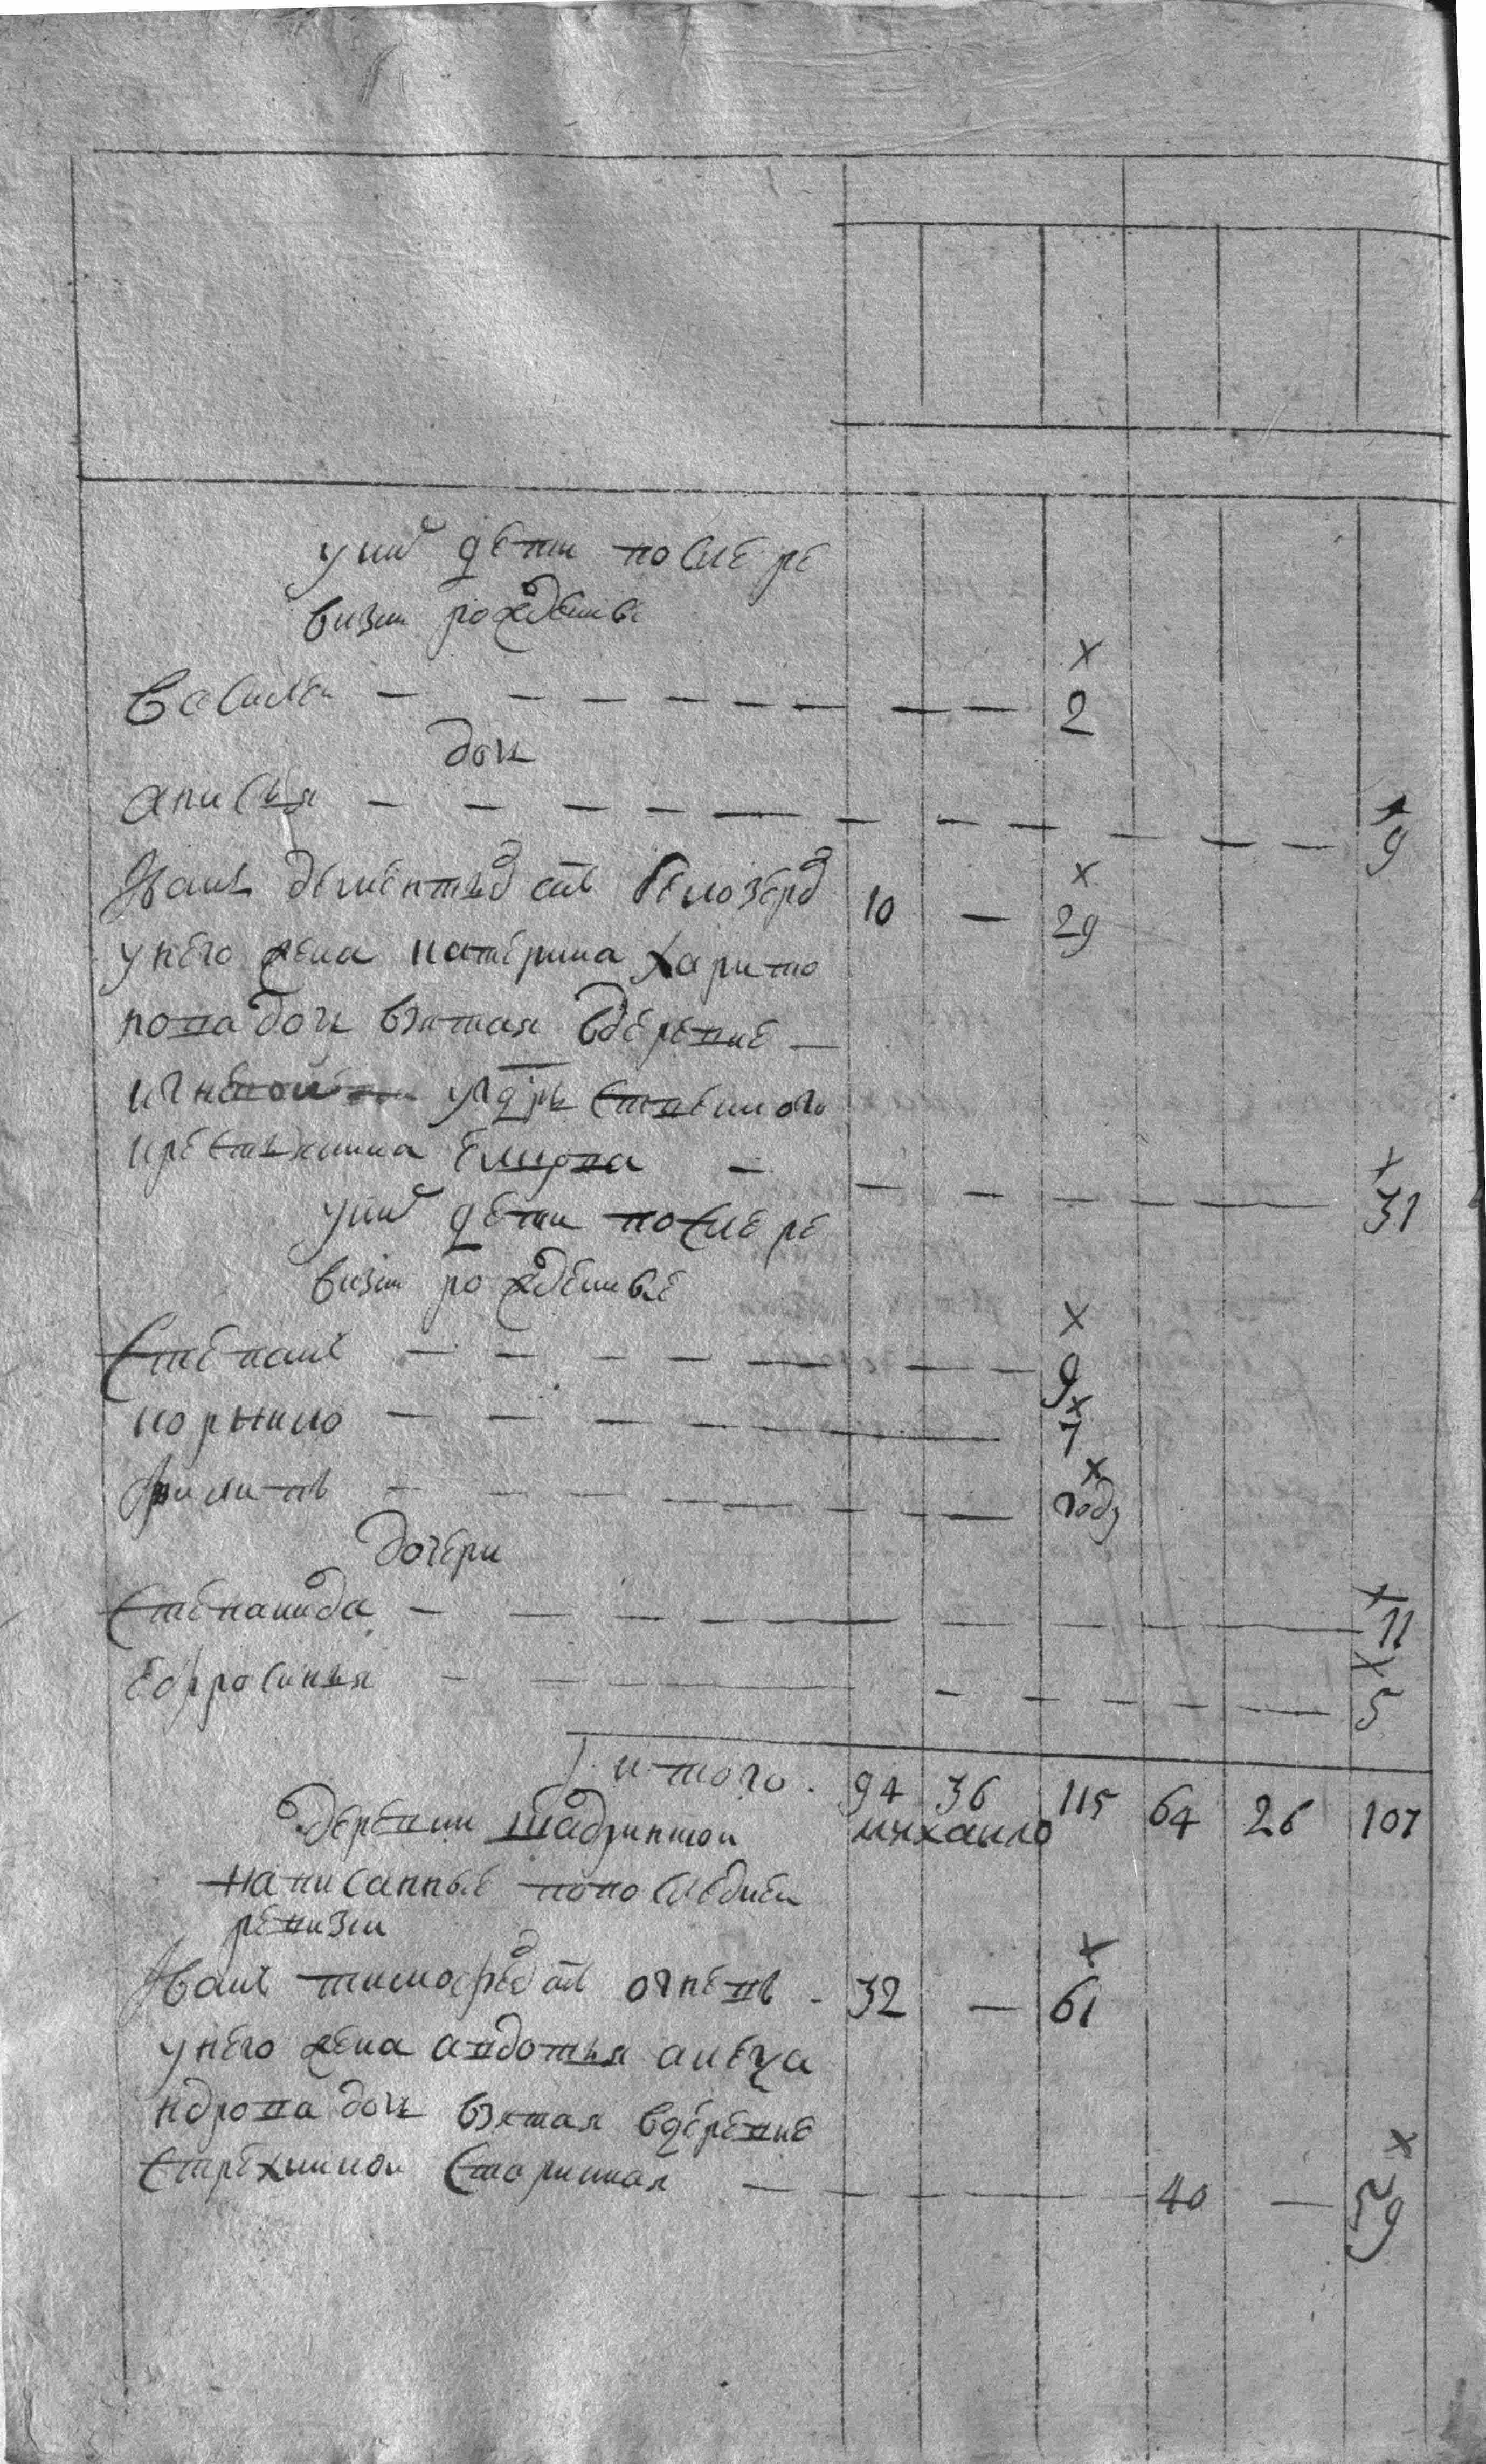 у них дети после ре
визи рожденные
Василеи — — — — — — — — — 2
дочь
анисья — — — — — — — — — — — 9
Иванъ дементьев снъ белозеров 10 — 29
у него жена катерина харито
нова дочь взятая вдеревне —
крестьянина —
— — — — — — 31
у них дети после ре
визи рожденные
Степанъ — — — — — — — — 9
корнило — — — — — — 7
Филипъ — — — — — — — году
дочери
Степанида — — — — — — — — 11
Ефросинья — — — — — — — — 5
итого. 94 36 115 64 26 107
деревни шадринкои михаило
написанные попоследнеи
ревизи
Иванъ тимофеев снъ огневъ - 32 — 61
у него жена авдотья алекса
ндрова дочь взятая вдеревне
Стрехнинои Старинная — — — — 40 — 59